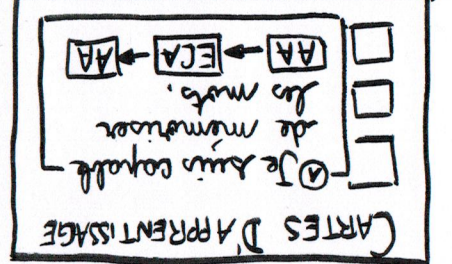 CARTES D'APPRENTISSAGE
Ⓐ Je suis capable
de mémoriser
les mots.
AA → ECA → AA